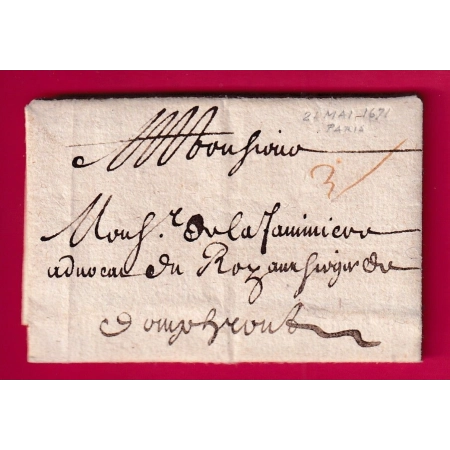 2[?] MAI 1671
PARIS
Monsieur
3
Mons.r de la Jaminiere
advocat du Roy au siege de
Dompfront